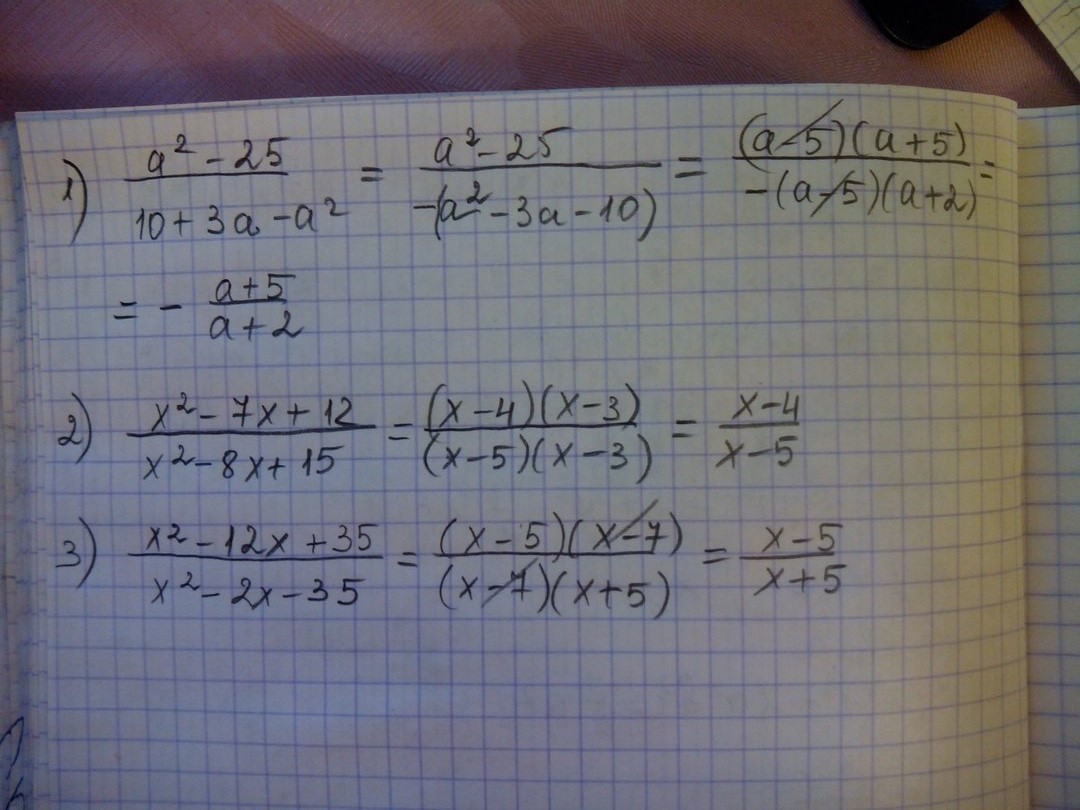 1) (a² - 25)/(10 + 3a - a²) = (a² - 25)/(-(a² - 3a - 10)) = ((a - 5)(a + 5))/(-(a - 5)(a + 2)) =
= - (a + 5)/(a + 2)
2) (x² - 7x + 12)/(x² - 8x + 15) = ((x - 4)(x - 3))/((x - 5)(x - 3)) = (x - 4)/(x - 5)
3) (x² - 12x + 35)/(x² - 2x - 35) = ((x - 5)(x - 7))/((x - 7)(x + 5)) = (x - 5)/(x + 5)